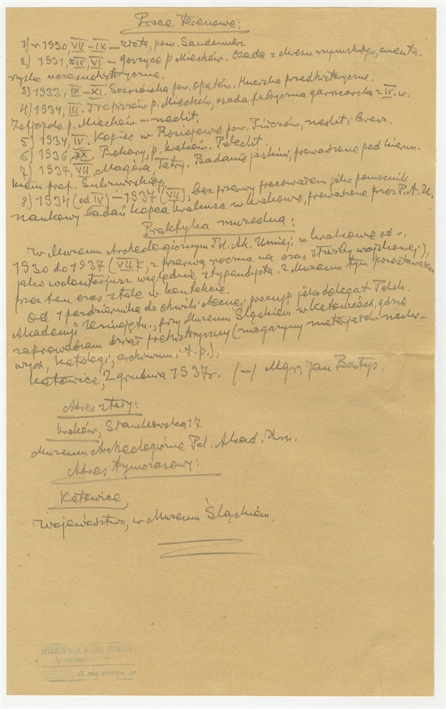 Prace terenowe:
1) w 1930, VII – IX – Złota, pow. Sandomierz
2) 1931, VI – p. Miechów. Osada z okresu rzymskiego, cmenta-
rzysko wczesnohistoryczne.
3) 1933, IX – XI. pow. Opatów. przedhistoryczne.
4) 1934, III. Tropiszów p. Miechów, osada fabryczna garncarska z IV. w.
p. Miechów – neolit.
5) 1934, IV. Kopiec w Rosiejowie pow. Pińczów, neolit i bronz.
6) 1936 p. Kraków. Paleolit.
7) 1937, VII Magóra, Tatry. Badanie jaskini, prowadzone pod kierun-
kiem prof.
8) 1934 (od IV) – 1937 (VII), bez przerwy pracowałem jako pomocnik
naukowy badań kopca Krakusa w Krakowie, prowadzone przez P. A. U.
Praktyka muzealna:
W Muzeum Archeologicznym Pol. Ak. Umiej. w Krakowie od
1930 do 1937 (VII), z przerwą roczną na oraz służby wojskowej),
jako wolontariusz względnie stypendysta. Z Muzeum tym pozostawałem
poza tem oraz stale w kontakcie.
Od 1 października do chwili obecnej pracuję jako delegat Polsk.
Akademji Umiejętn., przy Muzeum Śląskiem w Katowicach, gdzie
zaprowadzam dział prehistoryczny (magazyny materjałów nauko-
wych, katalogi, archiwum i t. p.),
Katowice, 2 grudnia 1937 r. (–) Mgr. Jan Bartys.
Adres stały:
Kraków, Sławkowska 17
Muzeum Archeologiczne Pol. Akad. Um.
Adres tymczasowy:
Katowice,
Województwo, w Muzeum Śląskiem.